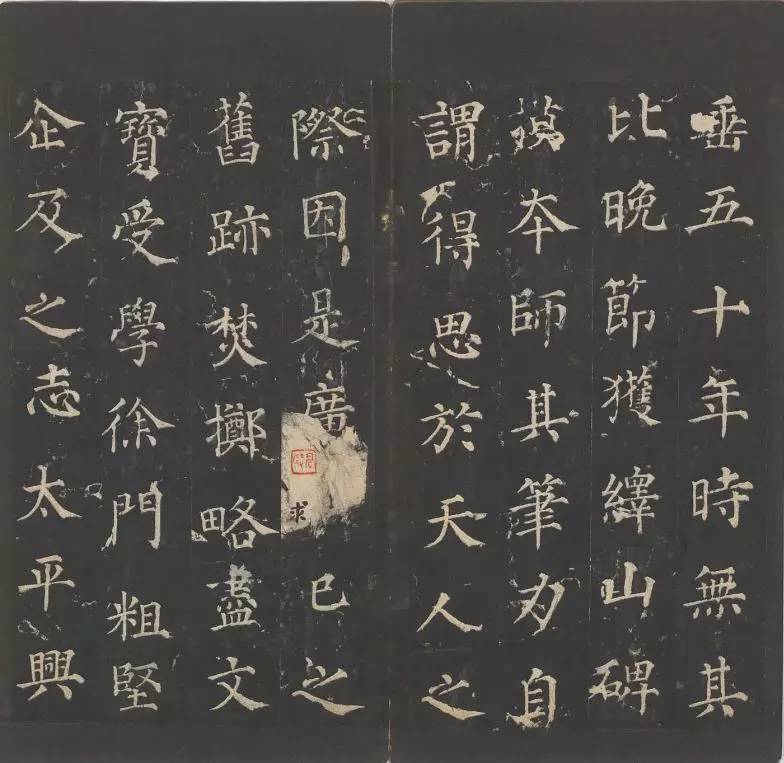 垂五十年時無其
比晚節獲繹山碑
摸本師其筆力自
謂得思於天人之
際因是廣求已之
舊跡焚擲略盡文
寶受學徐門粗堅
企及之志太平興